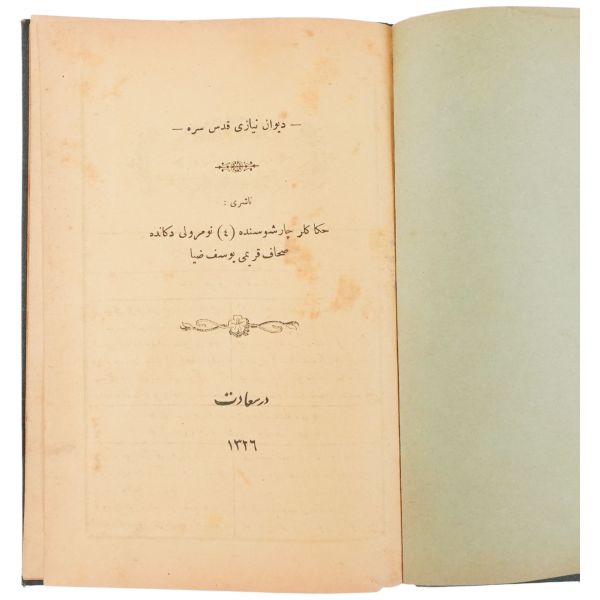 — ديوان نيازی قدس سره —
ناشری :
حكاكلر چارشوسنده (٤) نومرولی دكانده
صحاف قريمی يوسف ضيا
درسعادت
١٣٢٦